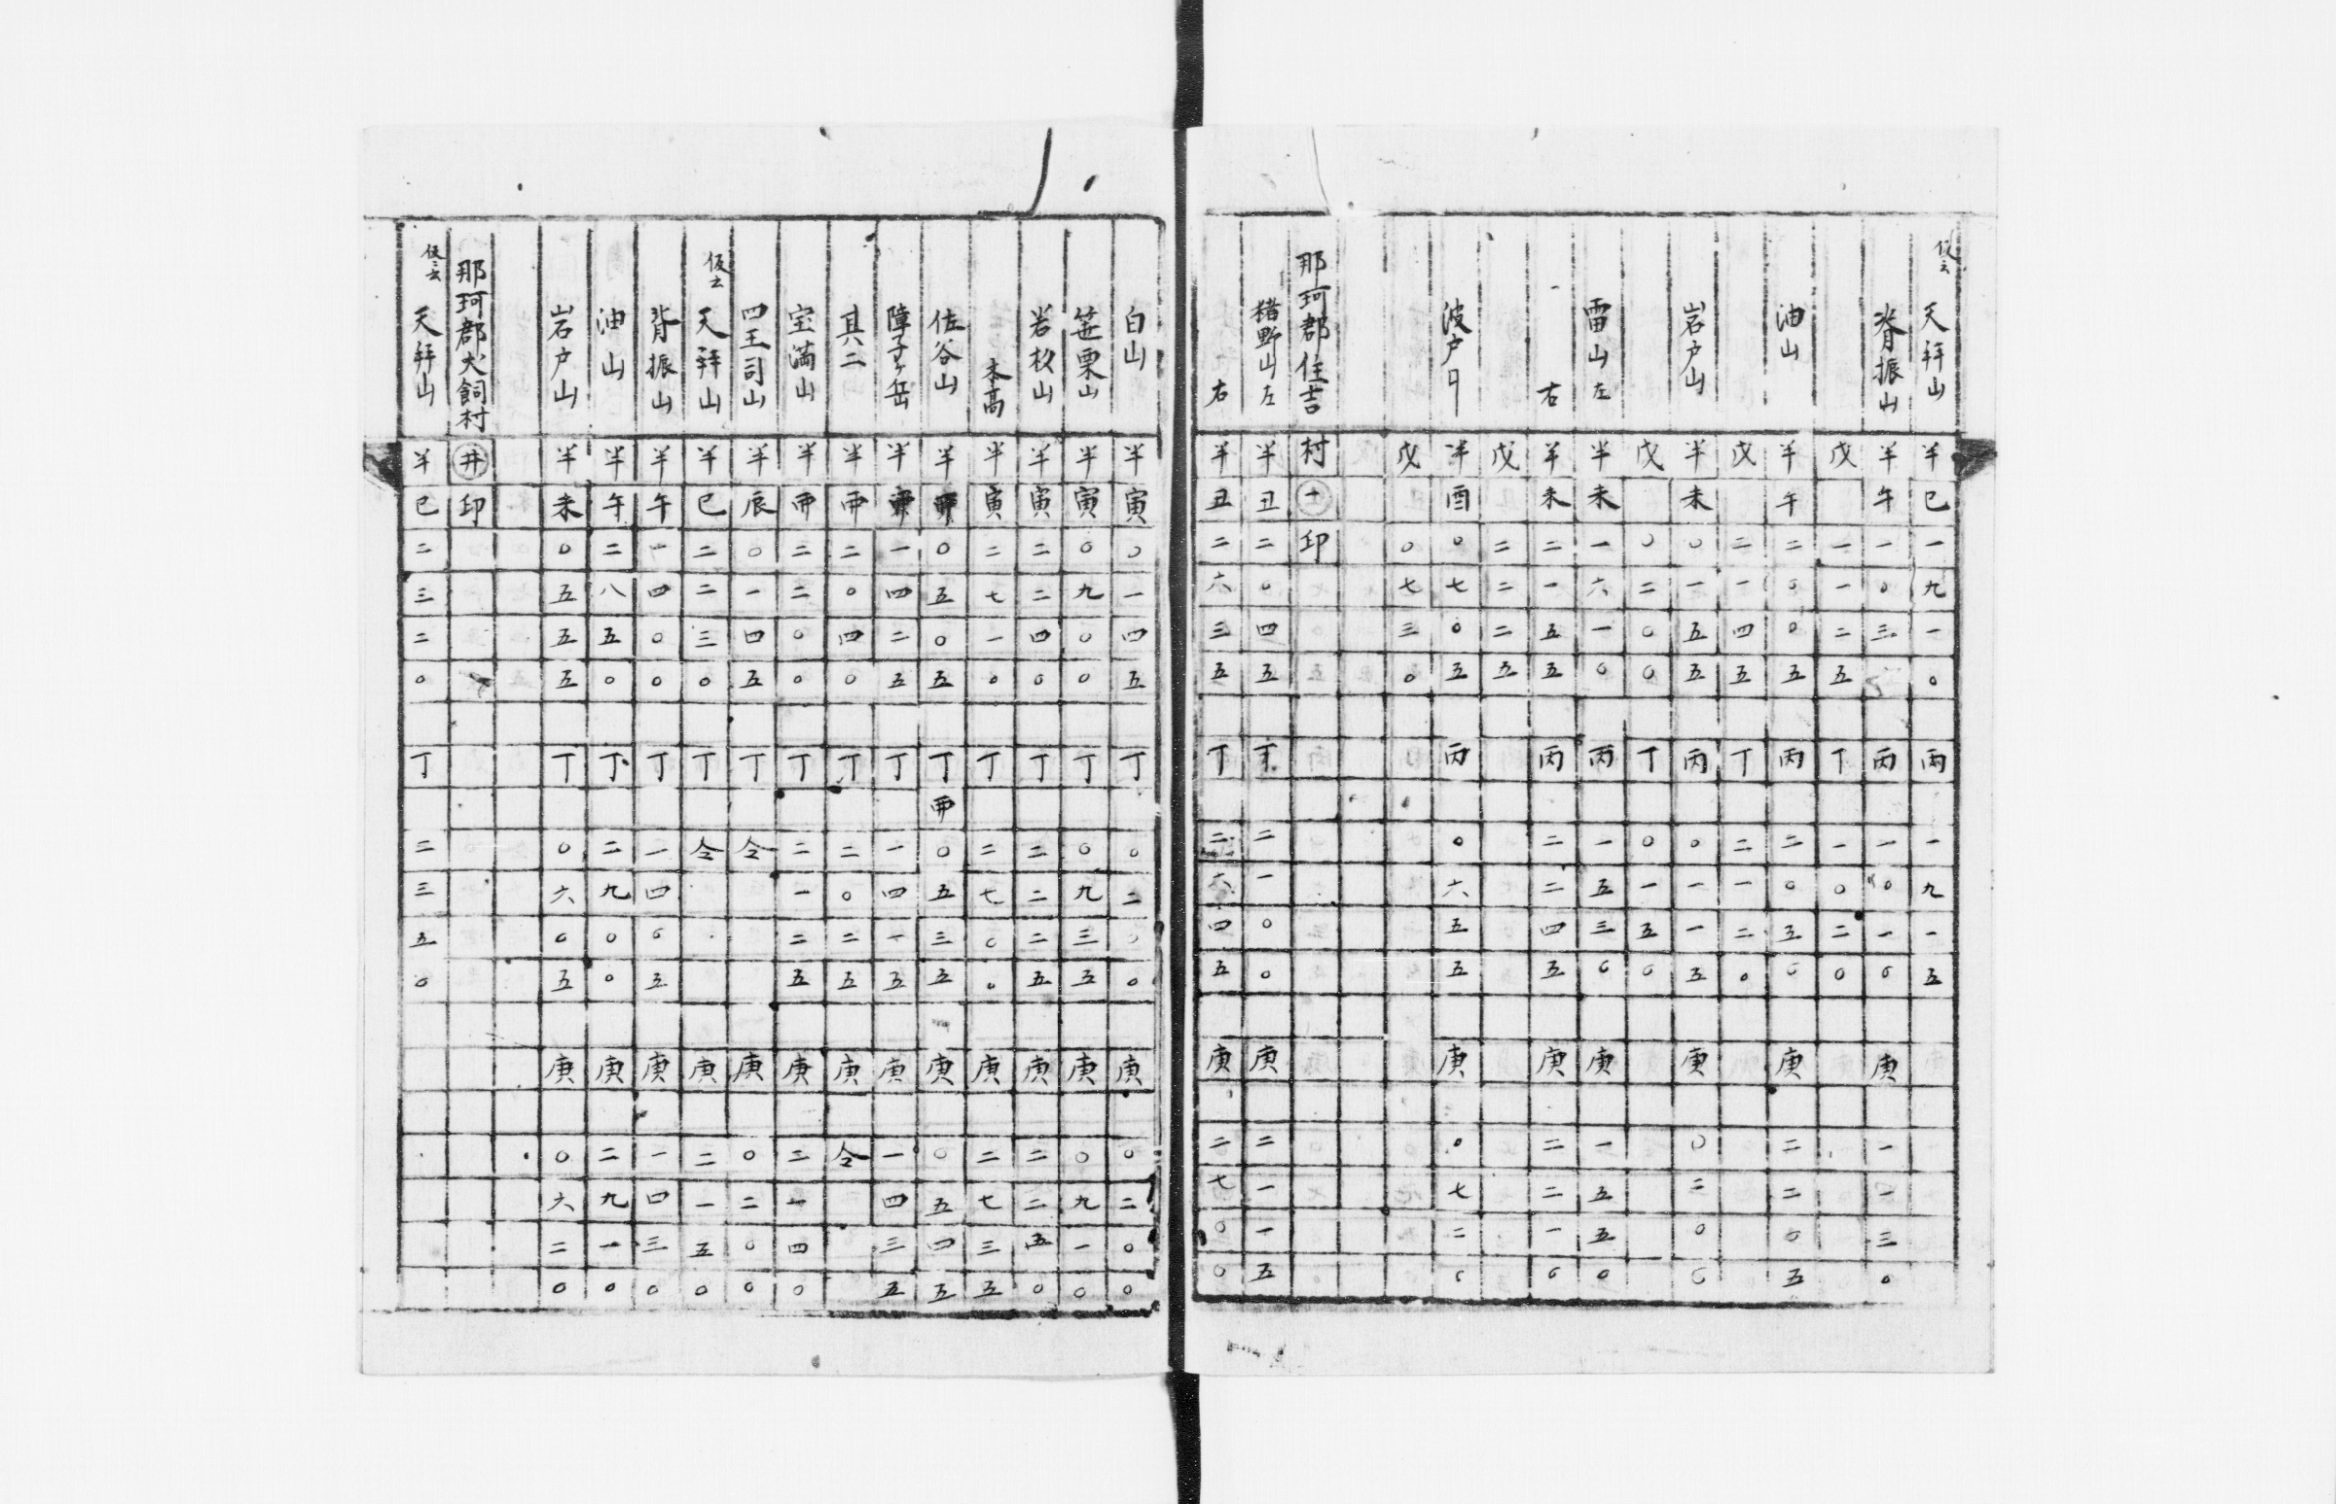 仮ニ云 天拝山 半巳一九一〇 丙一九一五
脊振山 半午一〇三 丙一〇一〇 庚一一三〇
戊一一二五 丁一〇二〇
油山 半午二〇〇五 丙二〇五〇 庚二二〇五
戊二一四五 丁二一二〇
岩戸山 半未〇一五五 丙〇一一五 庚〇二〇〇
戊〇二〇〇 丁〇一五〇
雷山左 半未一六一〇 丙一五三〇 庚一五五〇
右 半未二一五五 丙二二四五 庚二二一〇
戊二二二五
波戸口 半酉〇七〇五 丙〇六五五 庚〇七二〇
戊〇七三〇
那珂郡住吉村 ㊉印
猪野山左 半丑二〇四五 丁二一〇〇 庚二一一五
右 半丑二六三五 丁二六四五 庚二七〇〇
白山 半寅〇一四五 丁〇二〇〇 庚〇二〇〇
笹栗山 半寅〇九〇〇 丁〇九三五 庚〇九一〇
若杦山 半寅二二四〇 丁二二二五 庚二二五〇
木高 半寅二七一〇 丁二七〇〇 庚二七三五
佐谷山 半 〇五〇五 丁 〇五三五 庚〇五四五
障子ヶ岳 半 一四二五 丁一四一五 庚一四三五
其二 半 二〇四〇 丁二〇二五 庚仝
宝満山 半 二二〇〇 丁二一二五 庚二一四〇
四王司山 半辰〇一四五 丁仝 庚〇二〇〇
仮云 天拝山 半巳二二三〇 丁仝 庚二一五〇
背振山 半午一四〇〇 丁一四〇五 庚一四三〇
油山 半午二八五〇 丁二九〇〇 庚二九一〇
岩戸山 半未〇五五五 丁〇六〇五 庚〇六二〇
那珂郡犬飼村 井印
仮ニ云 天拝山 半巳二三二〇 丁二三五〇